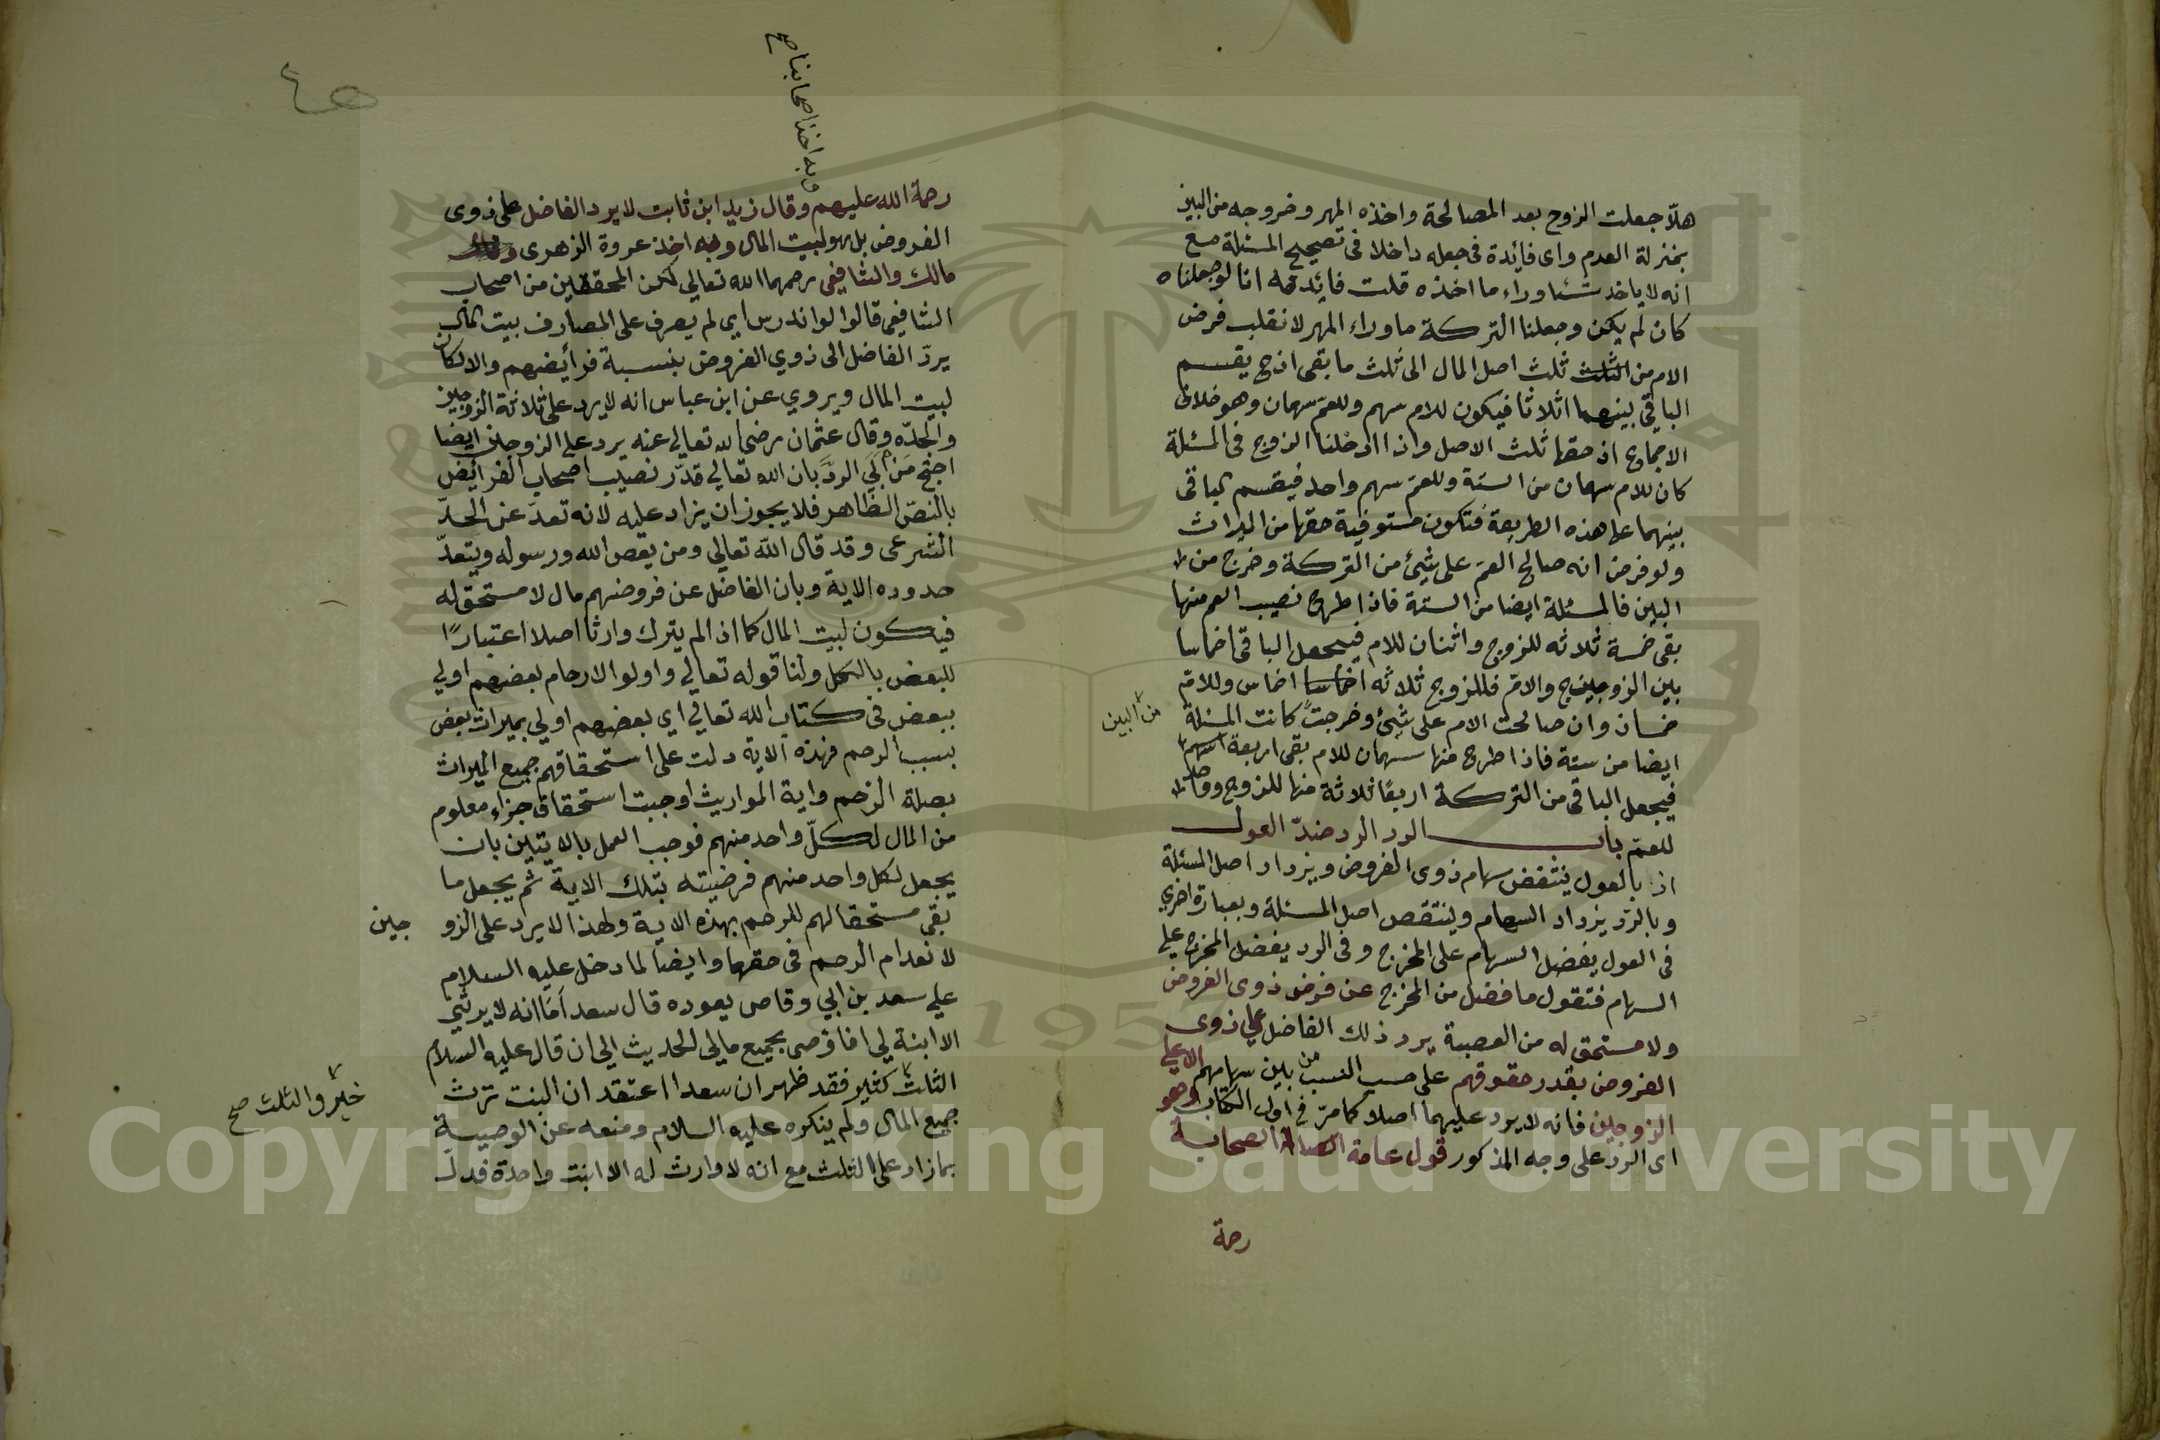 هلا جعلت الزوج بعد المصالحة واخذه المهر وخروجه من البين
بمنزلة العدم واى فايدة فى جعله داخلا فى تصحيح المسئلة مع
انه لا ياخذ شئا وراء ما اخذه قلت فايدته انا لو جعلناه
كان لم يكن وجعلنا التركة ما وراء المهر لانقلب فرض
الام من الثلث ثلث اصل المال الى ثلث ما بقى اذ ح يقسم
الباقى بينهما اثلاثا فيكون للام سهم وللعم سهمان وهو خلاف
الاجماع اذ حقها ثلث الاصل واذا ادخلنا الزوج فى المسئلة
كان للام سهمان من الستة وللعم سهم واحد فيقسم الباقى
بينهما على هذه الطريقة فتكون مستوفية حقها من الميراث
ولو فرض انه صالح العم على شيئ من التركة وخرج من
البين فالمسئلة ايضا من الستة فاذا طرح نصيب العم منها
بقى خمسة ثلاثه للزوج واثنان للام فيجعل الباقى اخماسا
بين الزوج والام فللزوج ثلاثه اخماس وللام
خمسان وان صالحت الام على شيئ وخرجت كانت المسئلة
من البين
ايضا من ستة فاذا طرح منها سهمان للام بقى اربعة اسهم
فيجعل الباقى من التركة اربعا ثلاثة منها للزوج وواحد
للعم باب الرد الرد ضد العول
اذ بالعول ينتقض سهام ذوى الفروض ويزداد اصل المسئلة
وبالرد يزداد السهام وينتقص اصل المسئلة وبعبارة اخري
فى العول يفضل السهام على المخرج وفى الرد يفضل المخرج على
السهام فتقول ما فضل من المخرج عن فرض ذوى الفروض
ولا مستحق له من العصبة يرد ذلك الفاضل على ذوى
الفروض بقدر حقوقهم على حسب النسب من بين سهامهم الا على
الزوجين فانه لا يرد عليهما اصلا كما مر فى اول الكتاب وهو
اى الرد على وجه المذكور قول عامة الصحابة
رحمة
وبه اخذ اصحابنا صح
رحمة الله عليهم وقال زيد ابن ثابت لا يرد الفاضل على ذوى
الفروض بل هو لبيت المال وبه اخذ عروة الزهرى و
مالك والشافعى رحمهما الله تعالى لكن المحققين من اصحاب
الشافعى قالوا لو اندرس اي لم يصرف على المصارف بيت المال
يرد الفاضل الى ذوي الفروض بنسبة فرائضهم والا لكان
لبيت المال ويروي عن ابن عباس انه لا يرد على ثلاثة الزوجين
والجدة وقال عثمان رضى الله تعالى عنه يرد على الزوجين ايضا
احتج من ابى الرد بان الله تعالى قدر نصيب اصحاب الفرائض
بالنص الظاهر فلا يجوز ان يزاد عليه لانه تعد عن الحد
الشرعى وقد قال الله تعالى ومن يعص الله ورسوله ويتعد
حدوده الاية وبان الفاضل عن فروضهم مال لا مستحق له
فيكون لبيت المال كما اذا لم يترك وارثا اصلا اعتبارا
للبعض بالكل ولنا قوله تعالى واولوا الارحام بعضهم اولى
ببعض فى كتاب الله تعالى اي بعضهم اولى بميراث بعض
بسبب الرحم فهذه الاية دلت على استحقاقهم جميع الميراث
بصلة الرحم واية المواريث اوجبت استحقاق جزاء معلوم
من المال لكل واحد منهم فوجب العمل بالايتين بان
يجعل لكل واحد منهم فرضيته بتلك الاية ثم يجعل ما
بقى مستحقا لهم للرحم بهذه الاية ولهذا لا يرد على الزو جين
لانعدام الرحم فى حقهما وايضا لما دخل عليه السلام
على سعد بن ابى وقاص يعوده قال سعد اما انه لا يرثني
الا ابنة لي افاوصى بجميع مالى الحديث الى ان قال عليه السلام
الثلث كثير فقد ظهر ان سعدا اعتقد ان البنت ترث
خير والثلث صح
جميع المال ولم ينكره عليه السلام ومنعه عن الوصية
بما زاد على الثلث مع انه لا وارث له الا ابنت واحدة فدل
Copyright © King Saud University
195